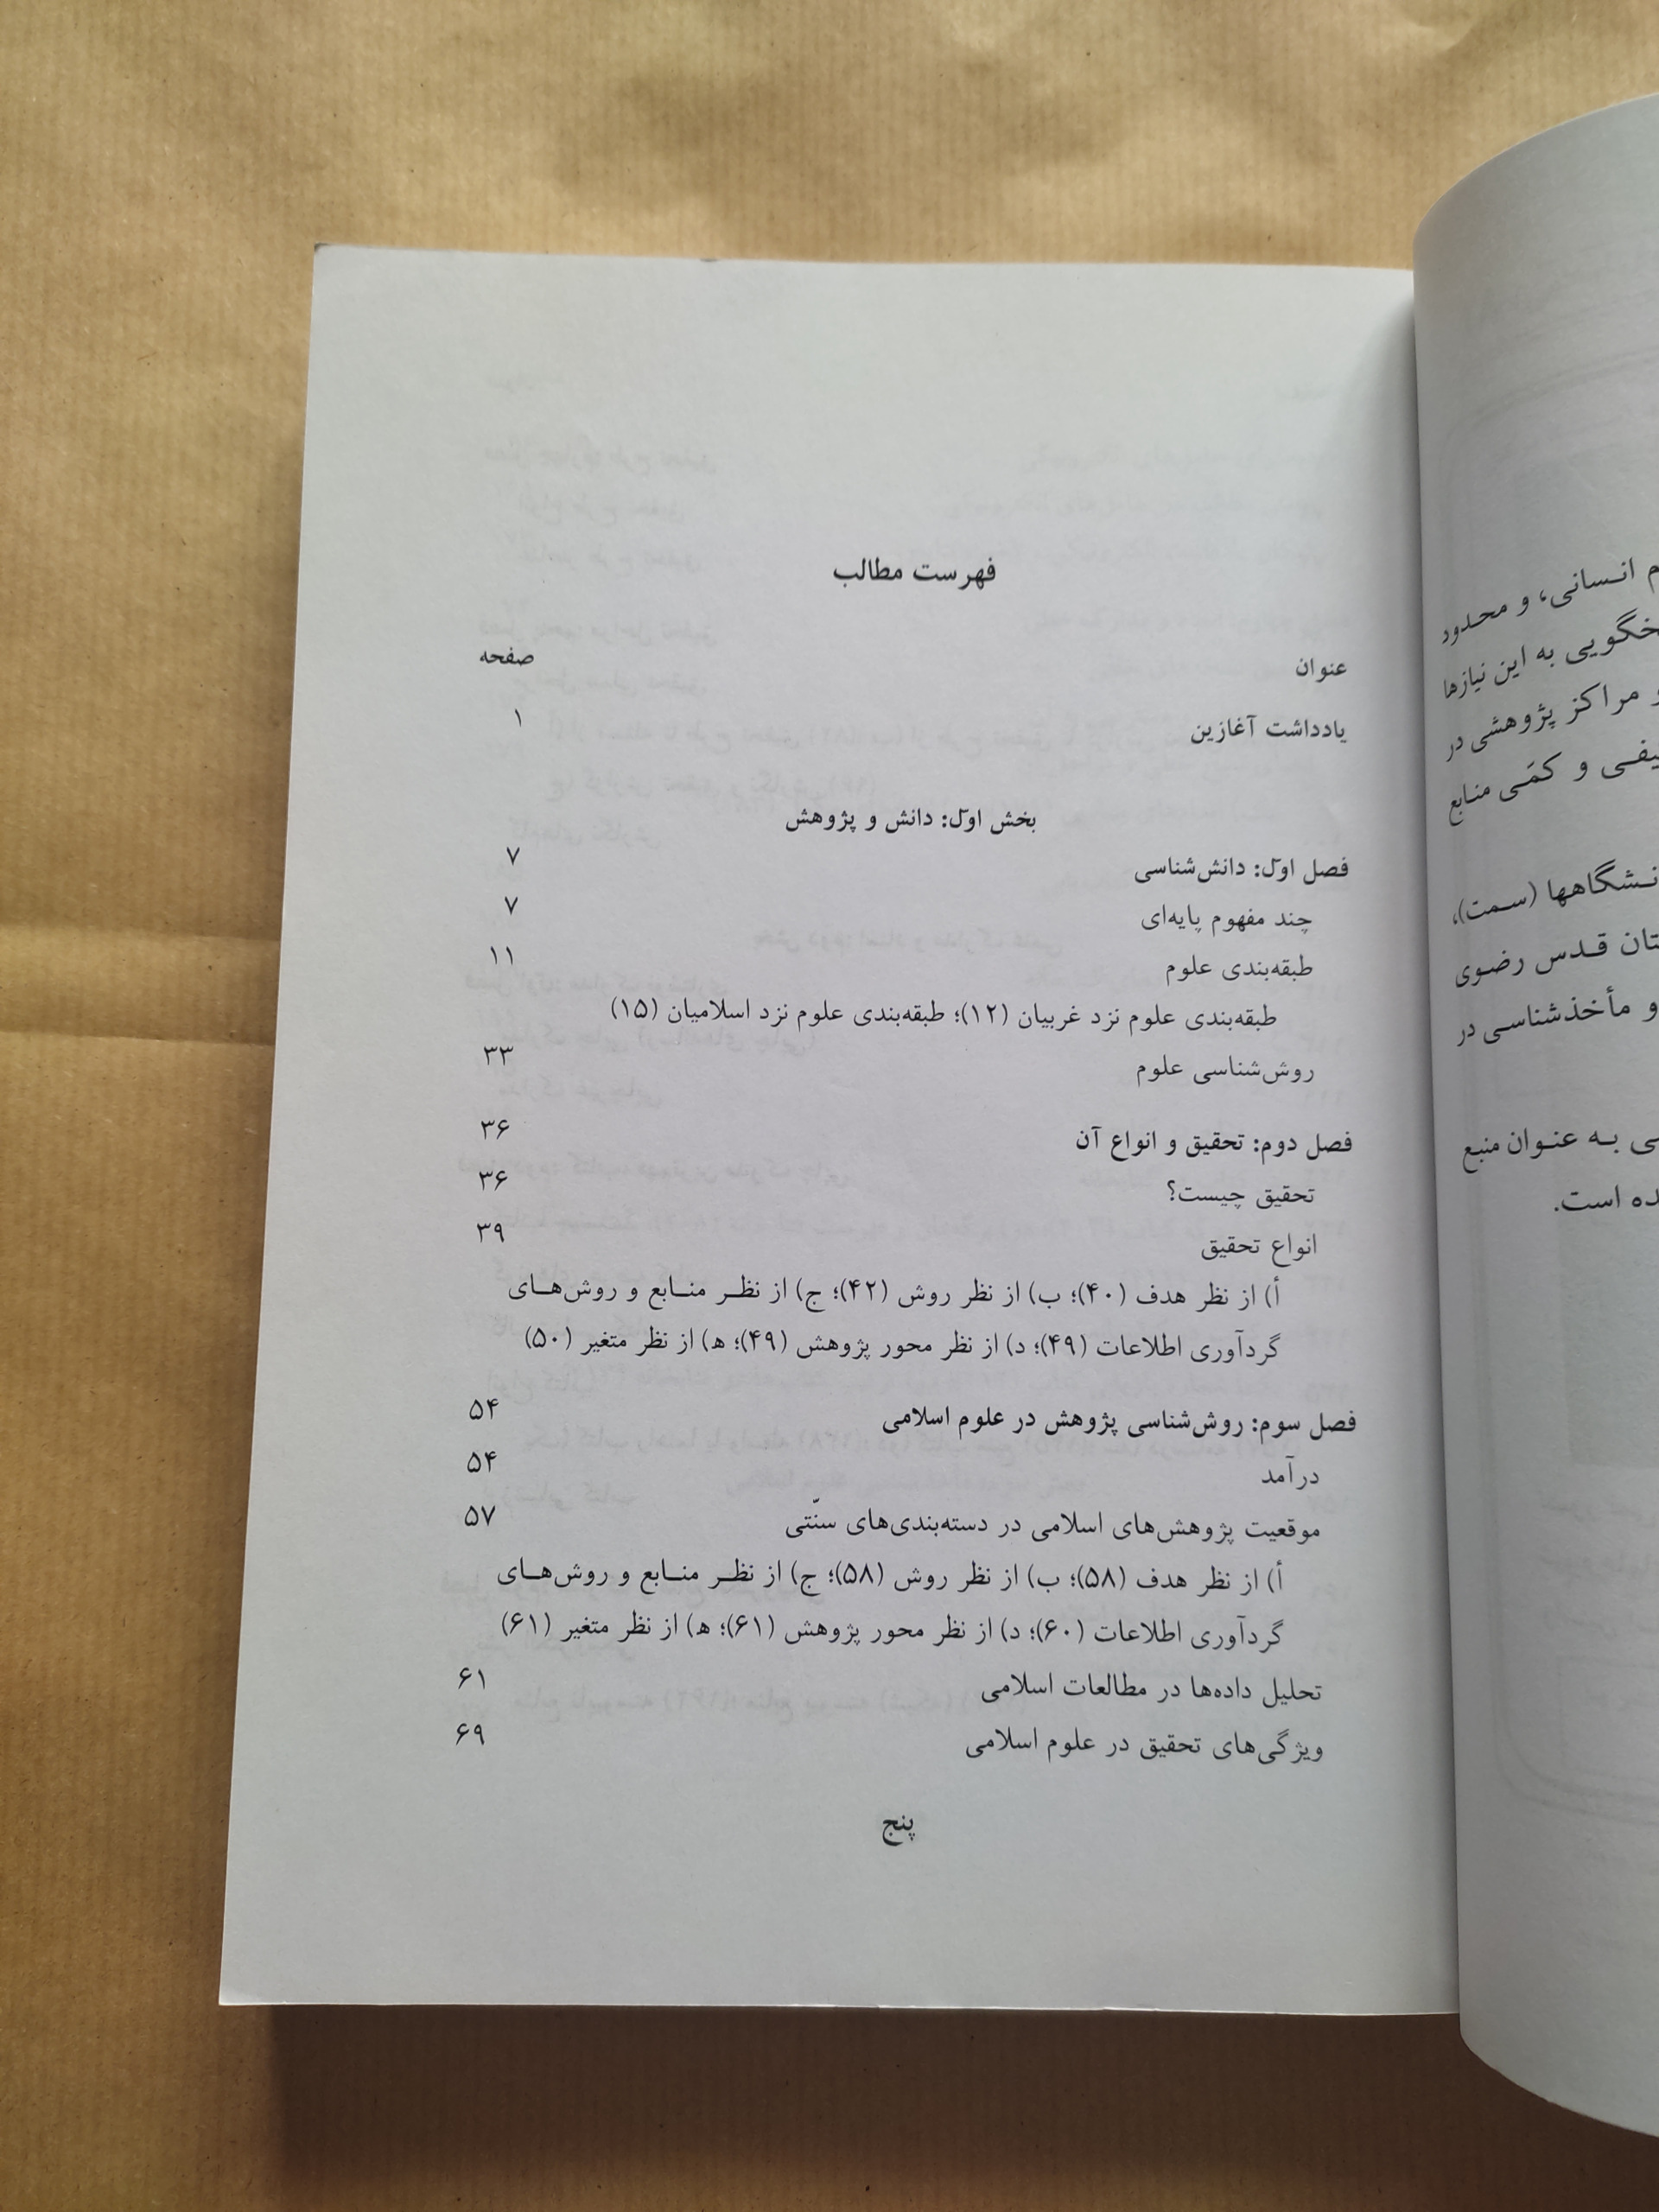 فهرست مطالب
عنوان صفحه
یادداشت آغازین ۱
بخش اوّل: دانش و پژوهش
فصل اوّل: دانش‌شناسی ۷
چند مفهوم پایه‌ای ۷
طبقه‌بندی علوم ۱۱
طبقه‌بندی علوم نزد غربیان (۱۲)؛ طبقه‌بندی علوم نزد اسلامیان (۱۵)
روش‌شناسی علوم ۳۳
فصل دوم: تحقیق و انواع آن ۳۶
تحقیق چیست؟ ۳۶
انواع تحقیق ۳۹
أ) از نظر هدف (۴۰)؛ ب) از نظر روش (۴۲)؛ ج) از نظـر منـابع و روش‌هـای
گردآوری اطلاعات (۴۹)؛ د) از نظر محور پژوهش (۴۹)؛ ه‍) از نظر متغیر (۵۰)
فصل سوم: روش‌شناسی پژوهش در علوم اسلامی ۵۴
درآمد ۵۴
موقعیت پژوهش‌های اسلامی در دسته‌بندی‌های سنّتی ۵۷
أ) از نظر هدف (۵۸)؛ ب) از نظر روش (۵۸)؛ ج) از نظـر منـابع و روش‌هـای
گردآوری اطلاعات (۶۰)؛ د) از نظر محور پژوهش (۶۱)؛ ه‍) از نظر متغیر (۶۱)
تحلیل داده‌ها در مطالعات اسلامی ۶۱
ویژگی‌های تحقیق در علوم اسلامی ۶۹
پنج
انـسانی، و محـدود
به این نیازها
مراکز پژوهشی در
و کمّـی منـابع
(سـمت)،
قـدس رضـوی
و مأخذشناسـی در
بـه عنـوان منبع
است.